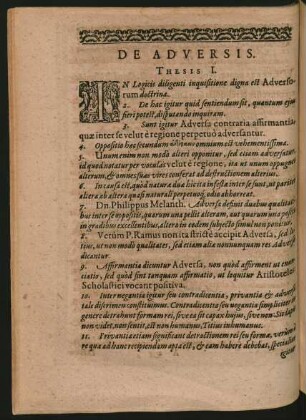 DE ADVERSIS.
THESIS I.
IN Logicis diligenti inquisitione digna est Adverso-
rum doctrina.
2. De hac igitur quid sentiendum sit, quantum ejus
fieri potest, disputando inquiram.
3. Sunt igitur Adversa contraria affirmantia,
quæ inter se velut è regione perpetuò adversantur.
4. Oppositio hæc secundum omnium est vehementissima.
5. Unum enim non modò alteri opponitur, sed etiam adversatur:
id quod natatur per velut è regione, ita ut unum oppugnet
alterum, & omnes suas vires conferat ad destructionem alterius.
6. Intas est, quòd natura duo hic ita infesta inter se sunt, ut pars
altera ab altera quasi naturali perpetuoq́; odio abhorreat.
7. Dn. Philippus Melanth. Adversa definit duabus qualitatibus
inter se oppositis, quarum una pellit alteram, aut quarum una posita
in gradibus excellentibus, altera in eodem subjecto simul non
8. Verùm P. Ramus non ita strictè accipit Adversa, sed
ut non modò qualitates, sed etiam alia nonnunquam res Adversa
dicantur.
9. Affirmantia dicuntur Adversa, non quòd affirment ut enuntiatio,
sed quòd sint tanquam affirmatio, ut loquitur Aristoteles
Scholastici vocant positiva.
10. Inter negantia igitur seu contradicentia, privantia & adversa
talis discrimen constituimus. Contradicentia seu negantia simpliciter
genere detrahunt formam rei, sive ea sit capax hujus, sive non: Sic
non videt, non sentit, est non humanus, Titius inhumanus.
11. Privantia etiam significant detractionem rei seu formæ,
re quæ ad hanc recipiendam apta est, & eam habere debebat, specialiter